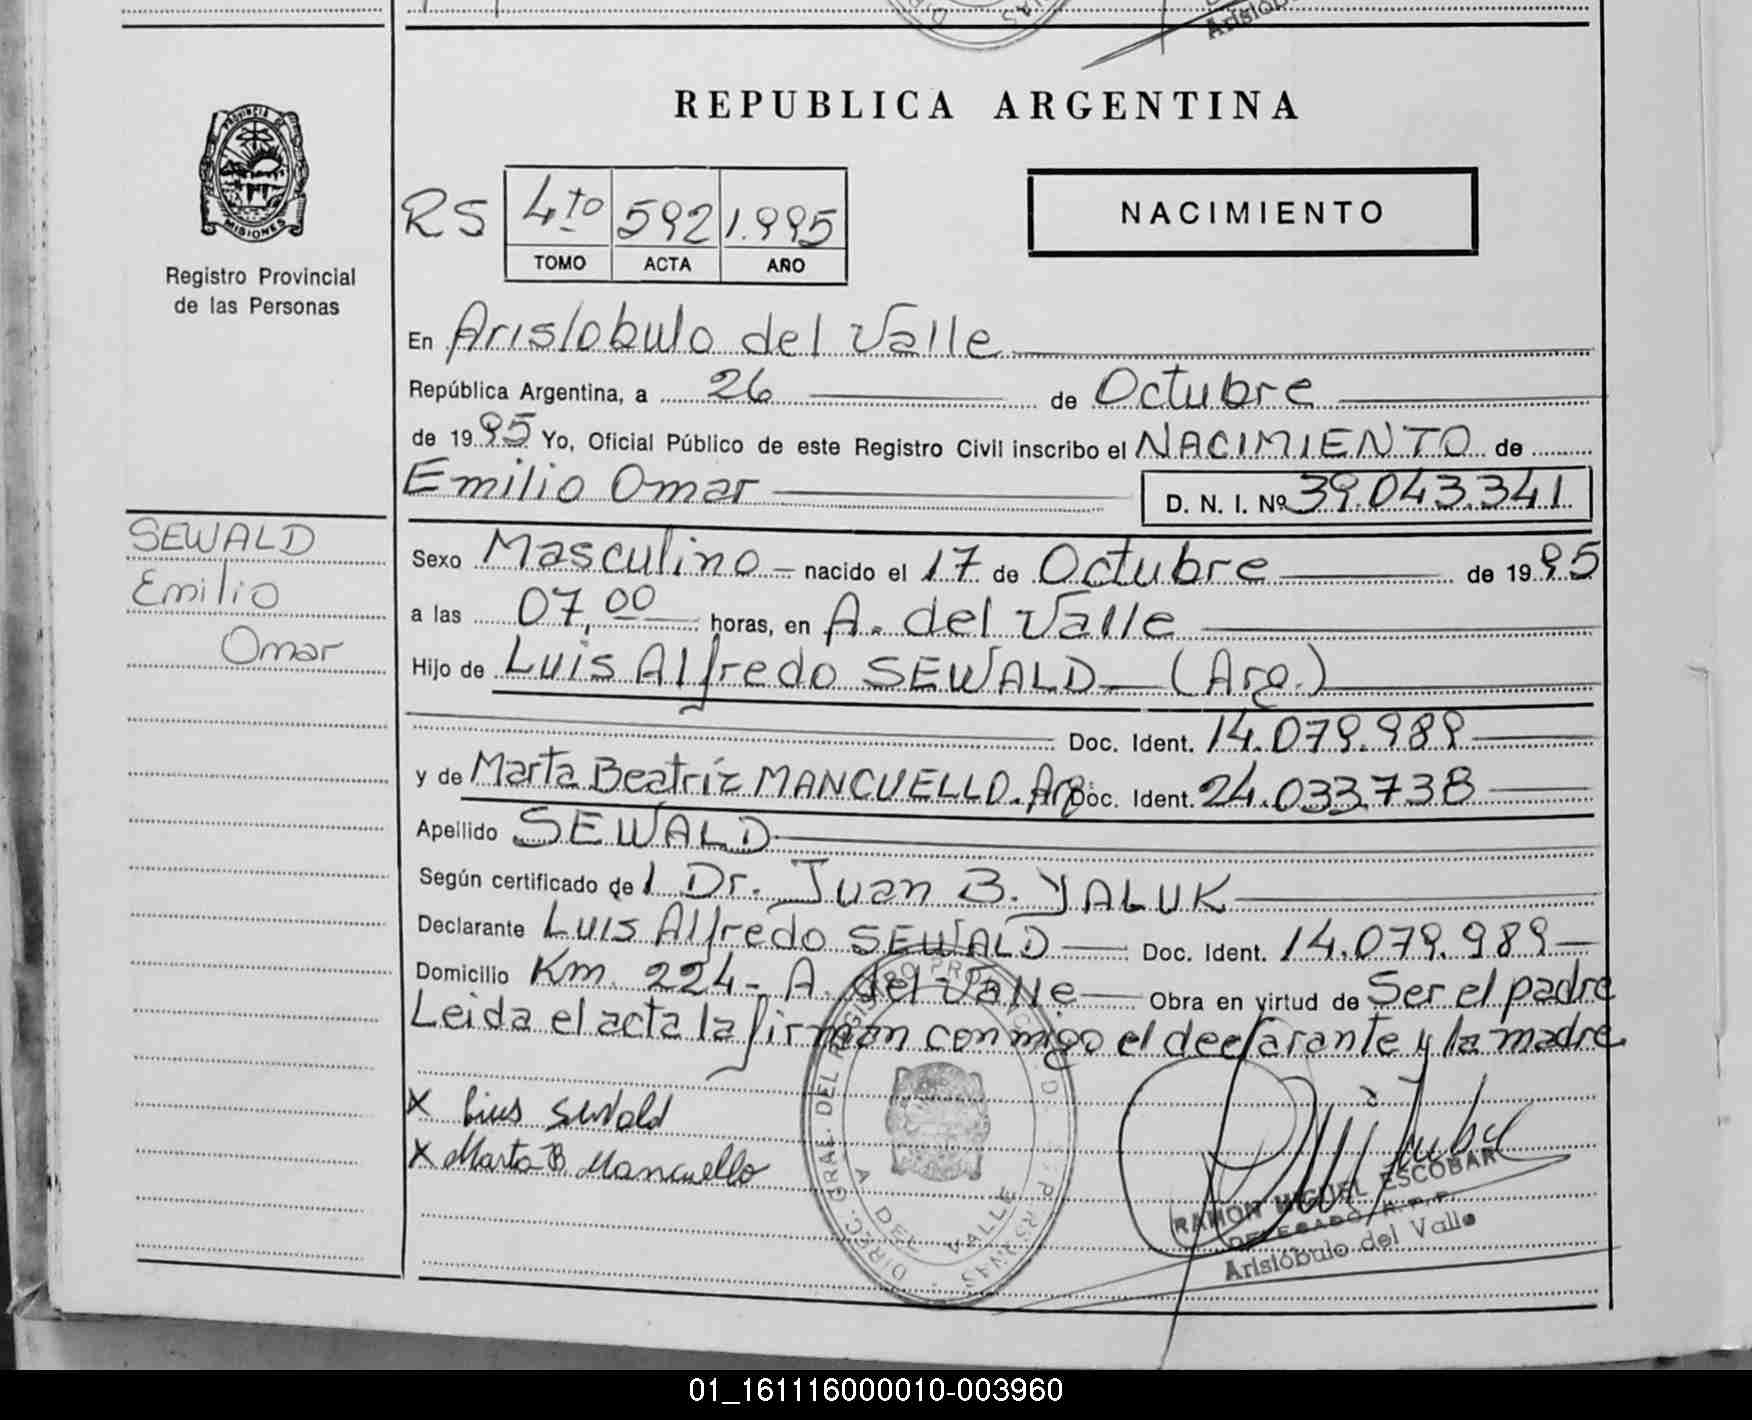 REPUBLICA ARGENTINA
PROVINCIA DE
MISIONES
Registro Provincial
de las Personas
RS 4to 592 1.995
TOMO ACTA AÑO
NACIMIENTO
En Aristobulo del Valle
República Argentina, a 26 de Octubre
de 1995 Yo, Oficial Público de este Registro Civil inscribo el NACIMIENTO de
Emilio Omar D. N. I. Nº 39.043.341
SEWALD
Emilio
Omar
Sexo Masculino nacido el 17 de Octubre de 1995
a las 07,00 horas, en A. del Valle
Hijo de Luis Alfredo SEWALD (Arg.)
Doc. Ident. 14.079.989
y de Marta Beatríz MANCUELLO. Arg. Doc. Ident. 24.033.738
Apellido SEWALD
Según certificado de l Dr. Juan B. YALUK
Declarante Luis Alfredo SEWALD Doc. Ident. 14.079.989
Domicilio Km. 224 - A. del Valle Obra en virtud de Ser el padre
Leida el acta la firman conmigo el declarante y la madre
X Luis Sewald
X Marta B Mancuello
DIREC. GRAL. DEL REGISTRO PROVINC. D. PERSONAS
A DEL VALLE
RAMON MIGUEL ESCOBAR
DELEGADO R.P.P.
Aristóbulo del Valle
01_161116000010-003960